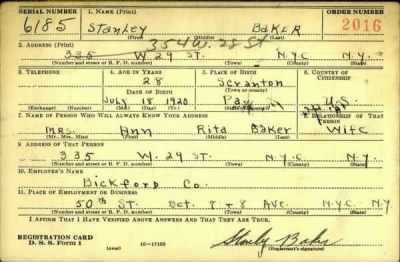 SERIAL NUMBER 1. NAME (Print) ORDER NUMBER
6185 Stanley BAKER 2016
(First) (Middle) (Last)
2. ADDRESS (Print) 354 W. 28 St
335 W 29 ST. N.Y.C N.Y.
(Number and street or R. F. D. number) (Town) (County) (State)
3. TELEPHONE 4. AGE IN YEARS 5. PLACE OF BIRTH 6. COUNTRY OF CITIZENSHIP
28 Scranton
DATE OF BIRTH (Town or county)
July 18 1920 Pa U.S.
(Exchange) (Number) (Mo.) (Day) (Yr.) (State or country)
7. NAME OF PERSON WHO WILL ALWAYS KNOW YOUR ADDRESS 8. RELATIONSHIP OF THAT PERSON
Mrs. Ann Rita Baker Wife
(Mr., Mrs., Miss) (First) (Middle) (Last)
9. ADDRESS OF THAT PERSON
335 W. 29 ST. N.Y.C N.Y.
(Number and street or R. F. D. number) (Town) (County) (State)
10. EMPLOYER'S NAME
Bickford Co.
11. PLACE OF EMPLOYMENT OR BUSINESS
50th ST. Bet. 7 & 8 Ave. N.Y.C. N.Y
(Number and street or R. F. D. number) (Town) (County) (State)
I AFFIRM THAT I HAVE VERIFIED ABOVE ANSWERS AND THAT THEY ARE TRUE.
REGISTRATION CARD
D. S. S. Form 1 (over) 16—17105 Stanley Baker
(Registrant's signature)